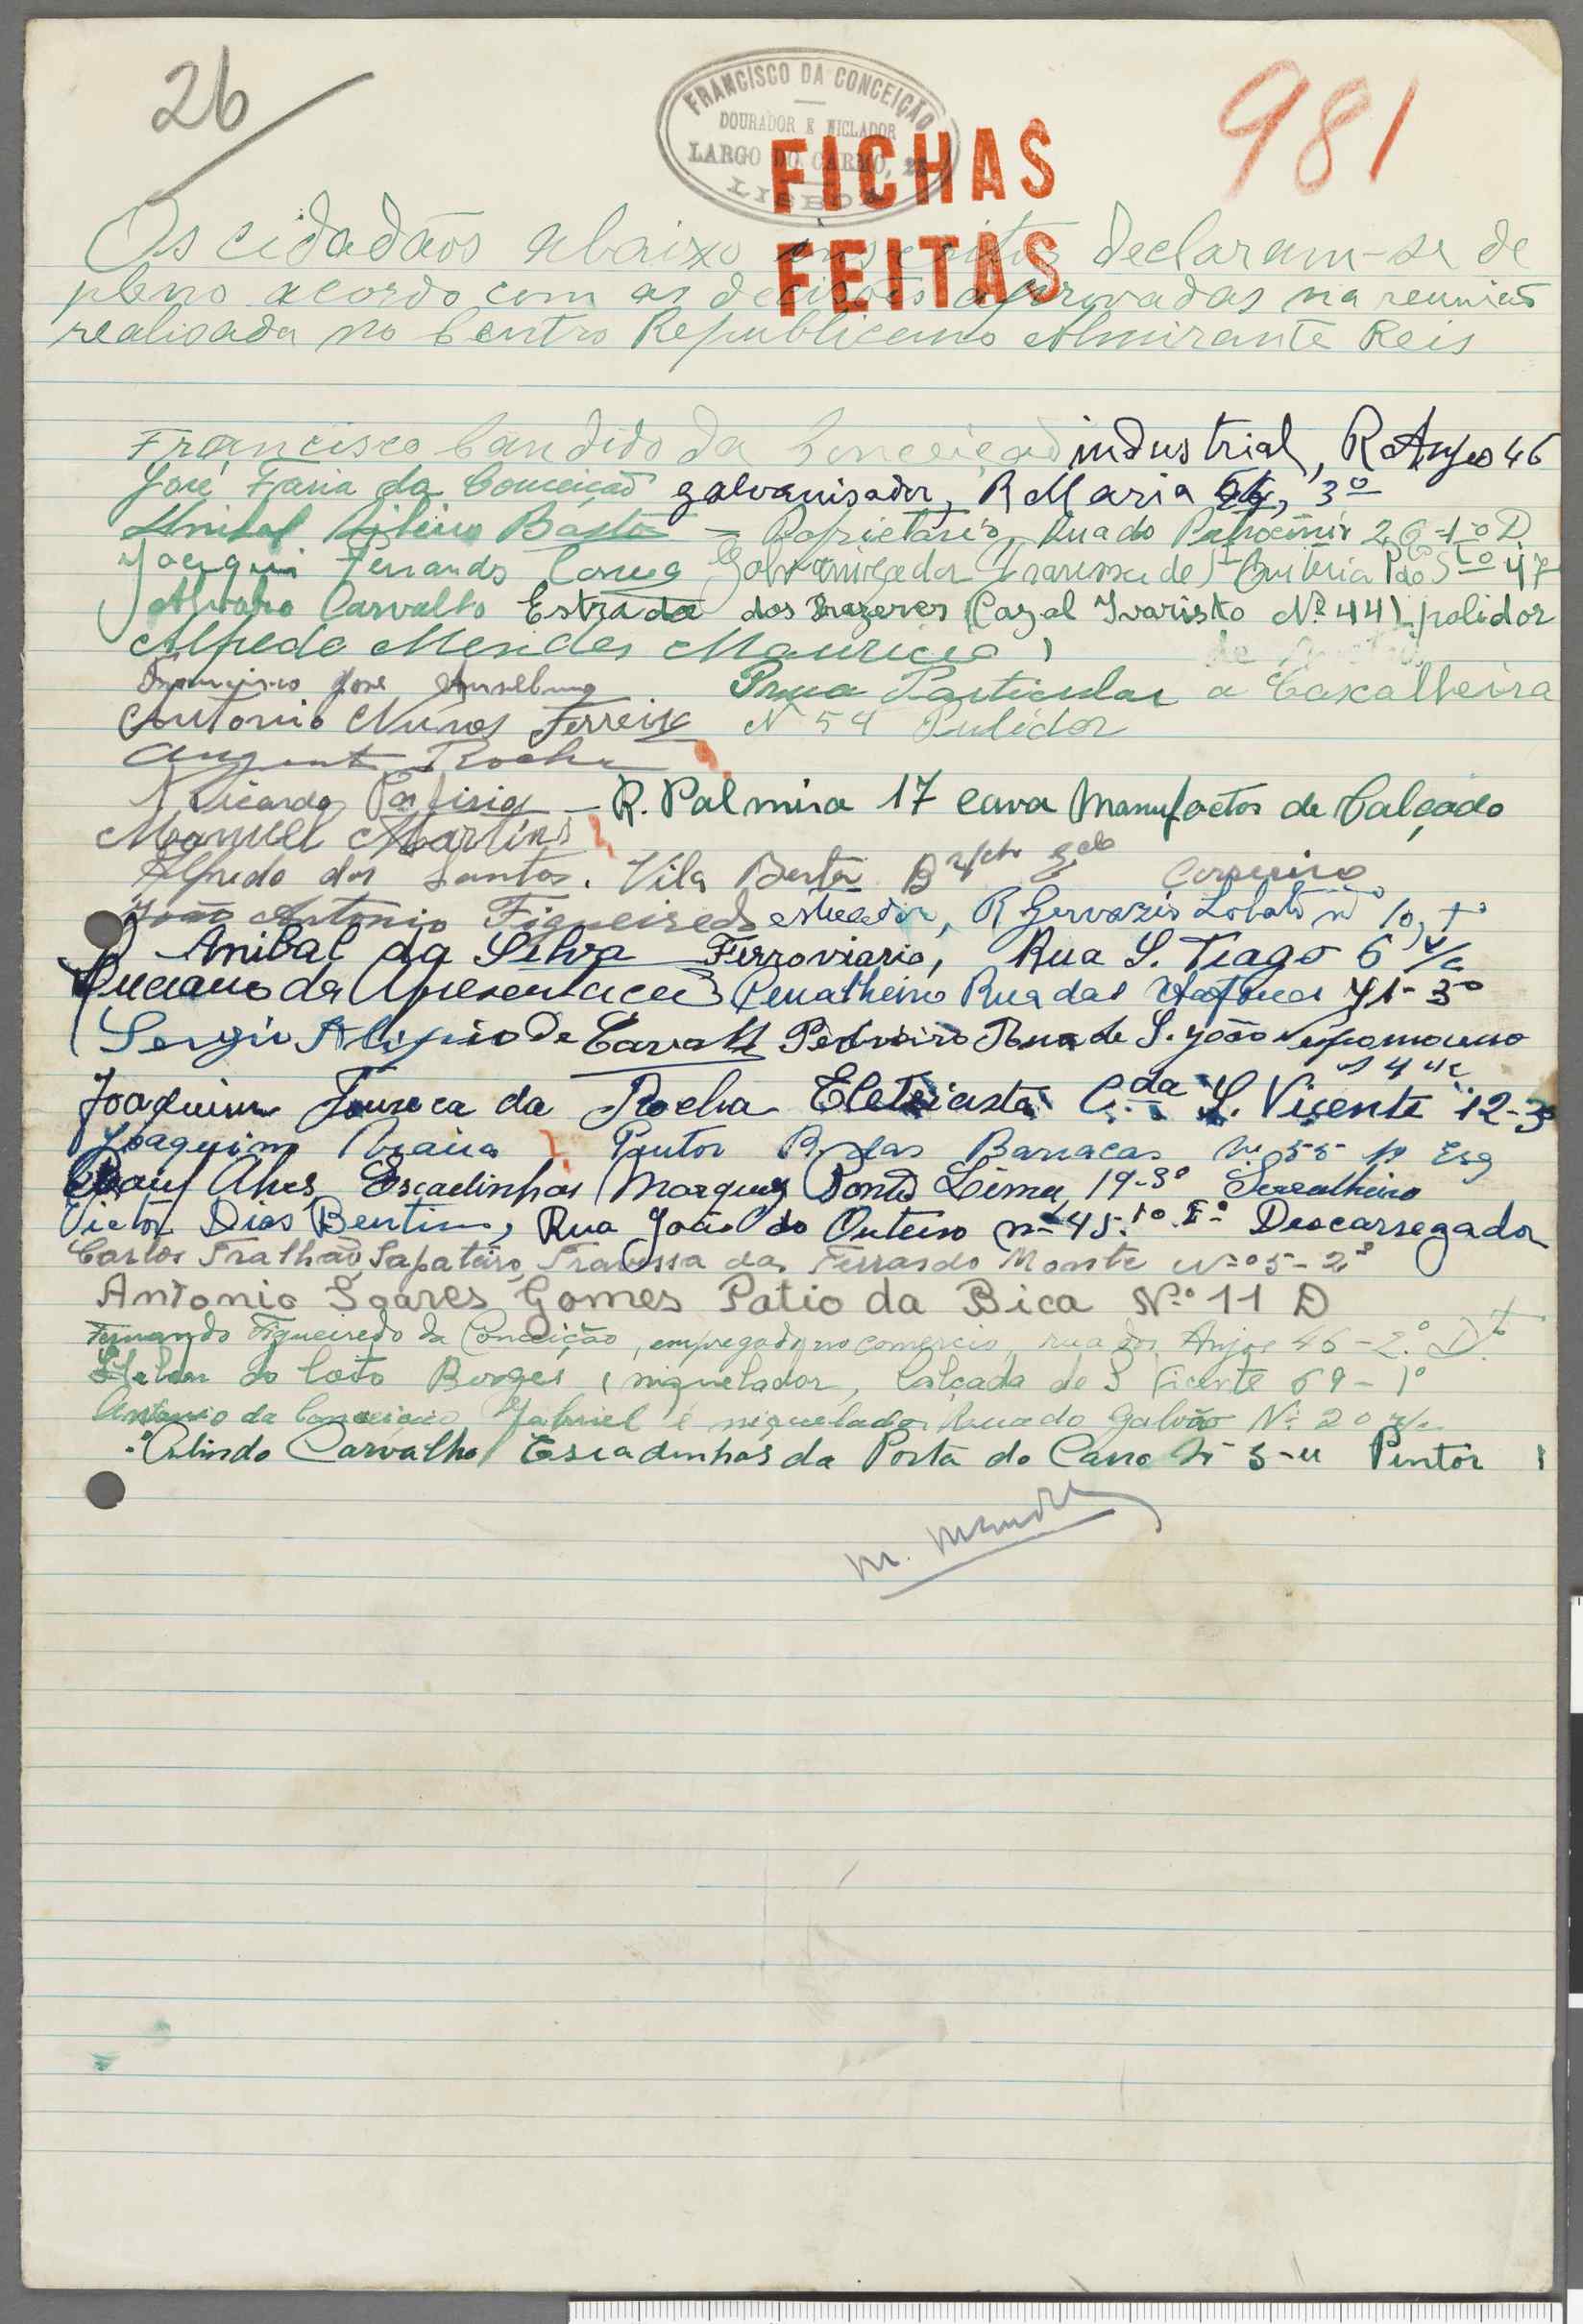 26
981
FRANCISCO DA CONCEIÇÃO
DOURADOR E NICLADOR
LARGO DO CARMO,
LISBOA
FICHAS
FEITAS
Os cidadãos abaixo inscritos declaram-se de
pleno acordo com as decisões aprovadas na reunião
realisada no Centro Republicano Almirante Reis
Francisco Candido da Conceição industrial, R Anjos 46
José Faria da Conceição galvanisador, R Maria 3º
Bastos = Proprietario, Rua do Patrocinio 26-1º D
Joaquim Fernando Galvanisador Travessa de Sta Quiteria 47
Alvaro Carvalho Estrada dos Prazeres Cazal Ivaristo Nº 441 polidor
Alfredo Mendes Mauricio
Francisco José Particular a Cascalheira
Antonio Nunes Ferreira Nº 54 Pulidor
August Rocha
Ricardo — R. Palmira 17 cave Manufactor de Calçado
Manuel Martins
Alfredo dos Santos. Vila Berta Correeiro
João Antonio Figueiredo estucador, R Gervazio Lobato nº 10,
Anibal da Silva Ferroviario, Rua S. Tiago 6 r/c
Luciano da Apresentação Rua das 71-3º
Sergio Alipio de Carvalho Pedreiro Rua de S. João Nepomuceno
Joaquim Fonseca da Rocha Eletricista C.da S. Vicente 12-3º
Joaquim Pintor R. das Barracas nº 55 Esq
Raul Alves Escadinhas Marquez Ponte Lima, 19-3º Serralheiro
Victor Dias Bentim, Rua João do Outeiro nº 45-1º Descarregador
Carlos Tralhão Sapateiro, Travessa das Terras do Monte nº 5-2º
Antonio Soares Gomes Patio da Bica Nº 11 D
Fernando Figueiredo da Conceição, empregado no comercio, rua dos Anjos 46-2º Dto
do Couto Borges, niquelador, Calçada de S Vicente 69-1º
Antonio da Conceição Gabriel é niquelador Rua do Galvão Nº 20 r/c
Arlindo Carvalho Escadinhas da Porta do Carro Pintor
M. Mendes